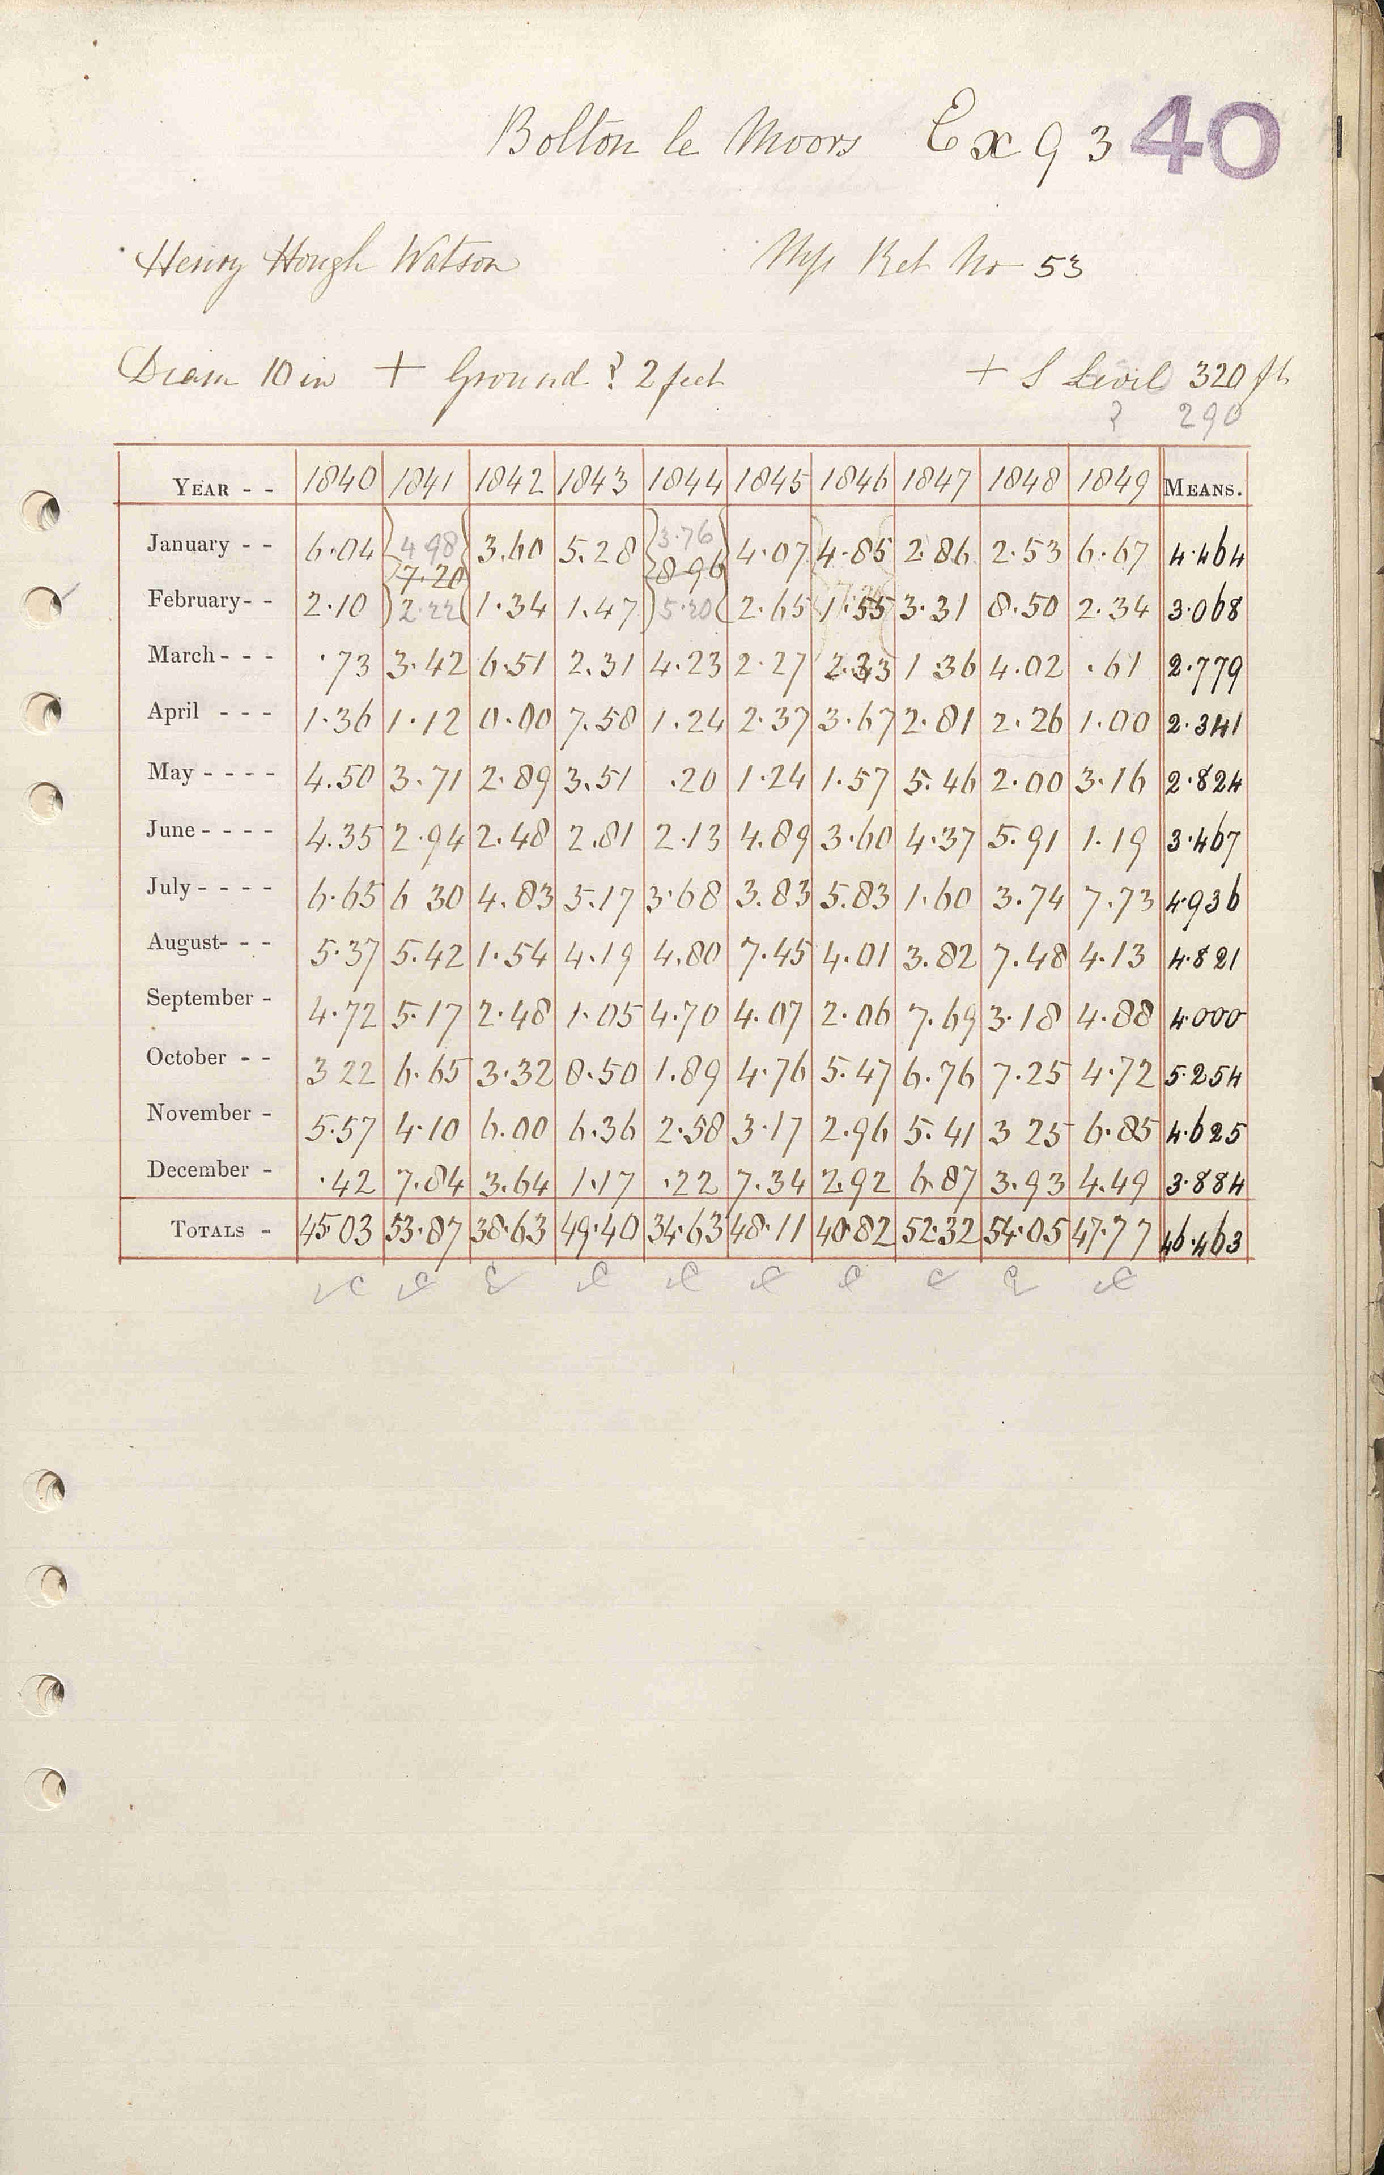 Bolton le Moors Ex 93 40
Henry Hough Watson Mss Ret No 53
Diam 10 in + Ground ? 2 feet + S Level 320 ft
? 290
YEAR - - 1840 1841 1842 1843 1844 1845 1846 1847 1848 1849 MEANS.
January - - 6.04 4.98 3.60 5.28 3.76 4.07 4.85 2.86 2.53 6.67 4.464
7.20 8.96
February- - 2.10 2.22 1.34 1.47 5.20 2.65 1.55 3.31 8.50 2.34 3.068
March - - - .73 3.42 6.51 2.31 4.23 2.27 2.33 1.36 4.02 .61 2.779
April - - - 1.36 1.12 0.00 7.58 1.24 2.37 3.67 2.81 2.26 1.00 2.341
May - - - - 4.50 3.71 2.89 3.51 .20 1.24 1.57 5.46 2.00 3.16 2.824
June - - - - 4.35 2.94 2.48 2.81 2.13 4.89 3.60 4.37 5.91 1.19 3.467
July - - - - 6.65 6 30 4.83 5.17 3.68 3.83 5.83 1.60 3.74 7.73 4.936
August- - - 5.37 5.42 1.54 4.19 4.80 7.45 4.01 3.82 7.48 4.13 4.821
September - 4.72 5.17 2.48 1.05 4.70 4.07 2.06 7.69 3.18 4.88 4.000
October - - 3 22 6.65 3.32 8.50 1.89 4.76 5.47 6.76 7.25 4.72 5.254
November - 5.57 4.10 6.00 6.36 2.58 3.17 2.96 5.41 3 25 6.85 4.625
December - .42 7.84 3.64 1.17 .22 7.34 2.92 6.87 3.93 4.49 3.884
TOTALS - 45.03 53.87 38.63 49.40 34.63 48.11 40.82 52.32 54.05 47.77 46.463